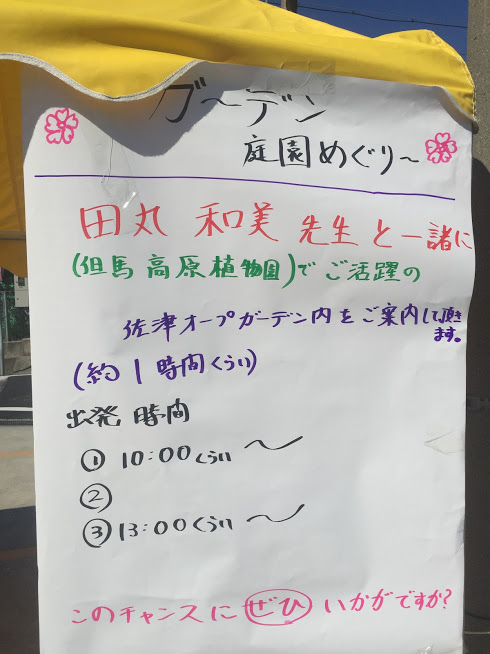 ガーデン
庭園めぐり〜
田丸 和美 先生と一諸に
(但馬高原植物園)でご活躍の
佐津オープガーデン内をご案内して頂き
ます。
(約1時間くらい)
出発時間
① 10:00くらい 〜
②
③ 13:00くらい 〜
このチャンスにぜひいかがですか?